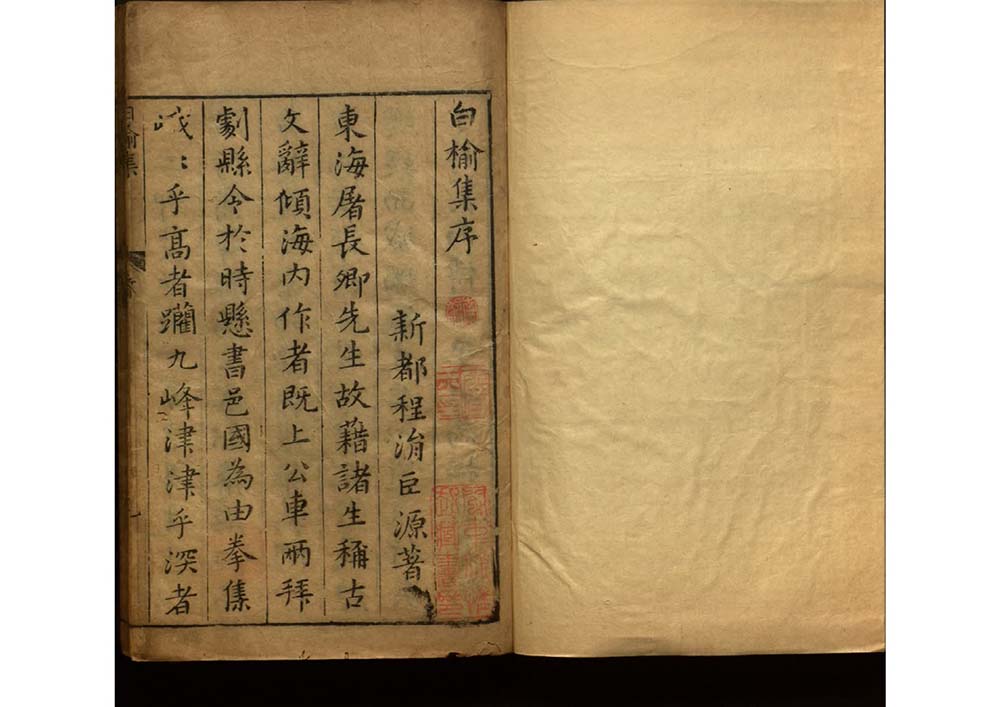 白榆集序
新都程涓巨源著
東海屠長卿先生故藉諸生稱古
文辭傾海內作者既上公車兩拜
劇縣令於時懸書邑國為由拳集
峨〻乎高者躪九峰津津乎深者
白榆集
序
一